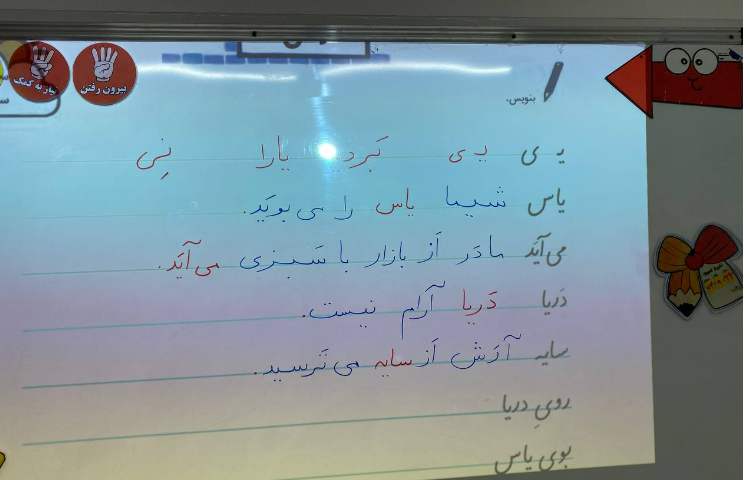 نیاز به کمک
بیرون رفتن
بنویس.
یـ ی یـ ی یارا
یاس شیما یاس را می بویَد.
می‌آیَد مادَر اَز بازار با سَبزی می آیَد.
دَریا دَریا آرام نیست.
سایه آرَش اَز سایه می تَرسید.
رویِ دریا
بوی یاس